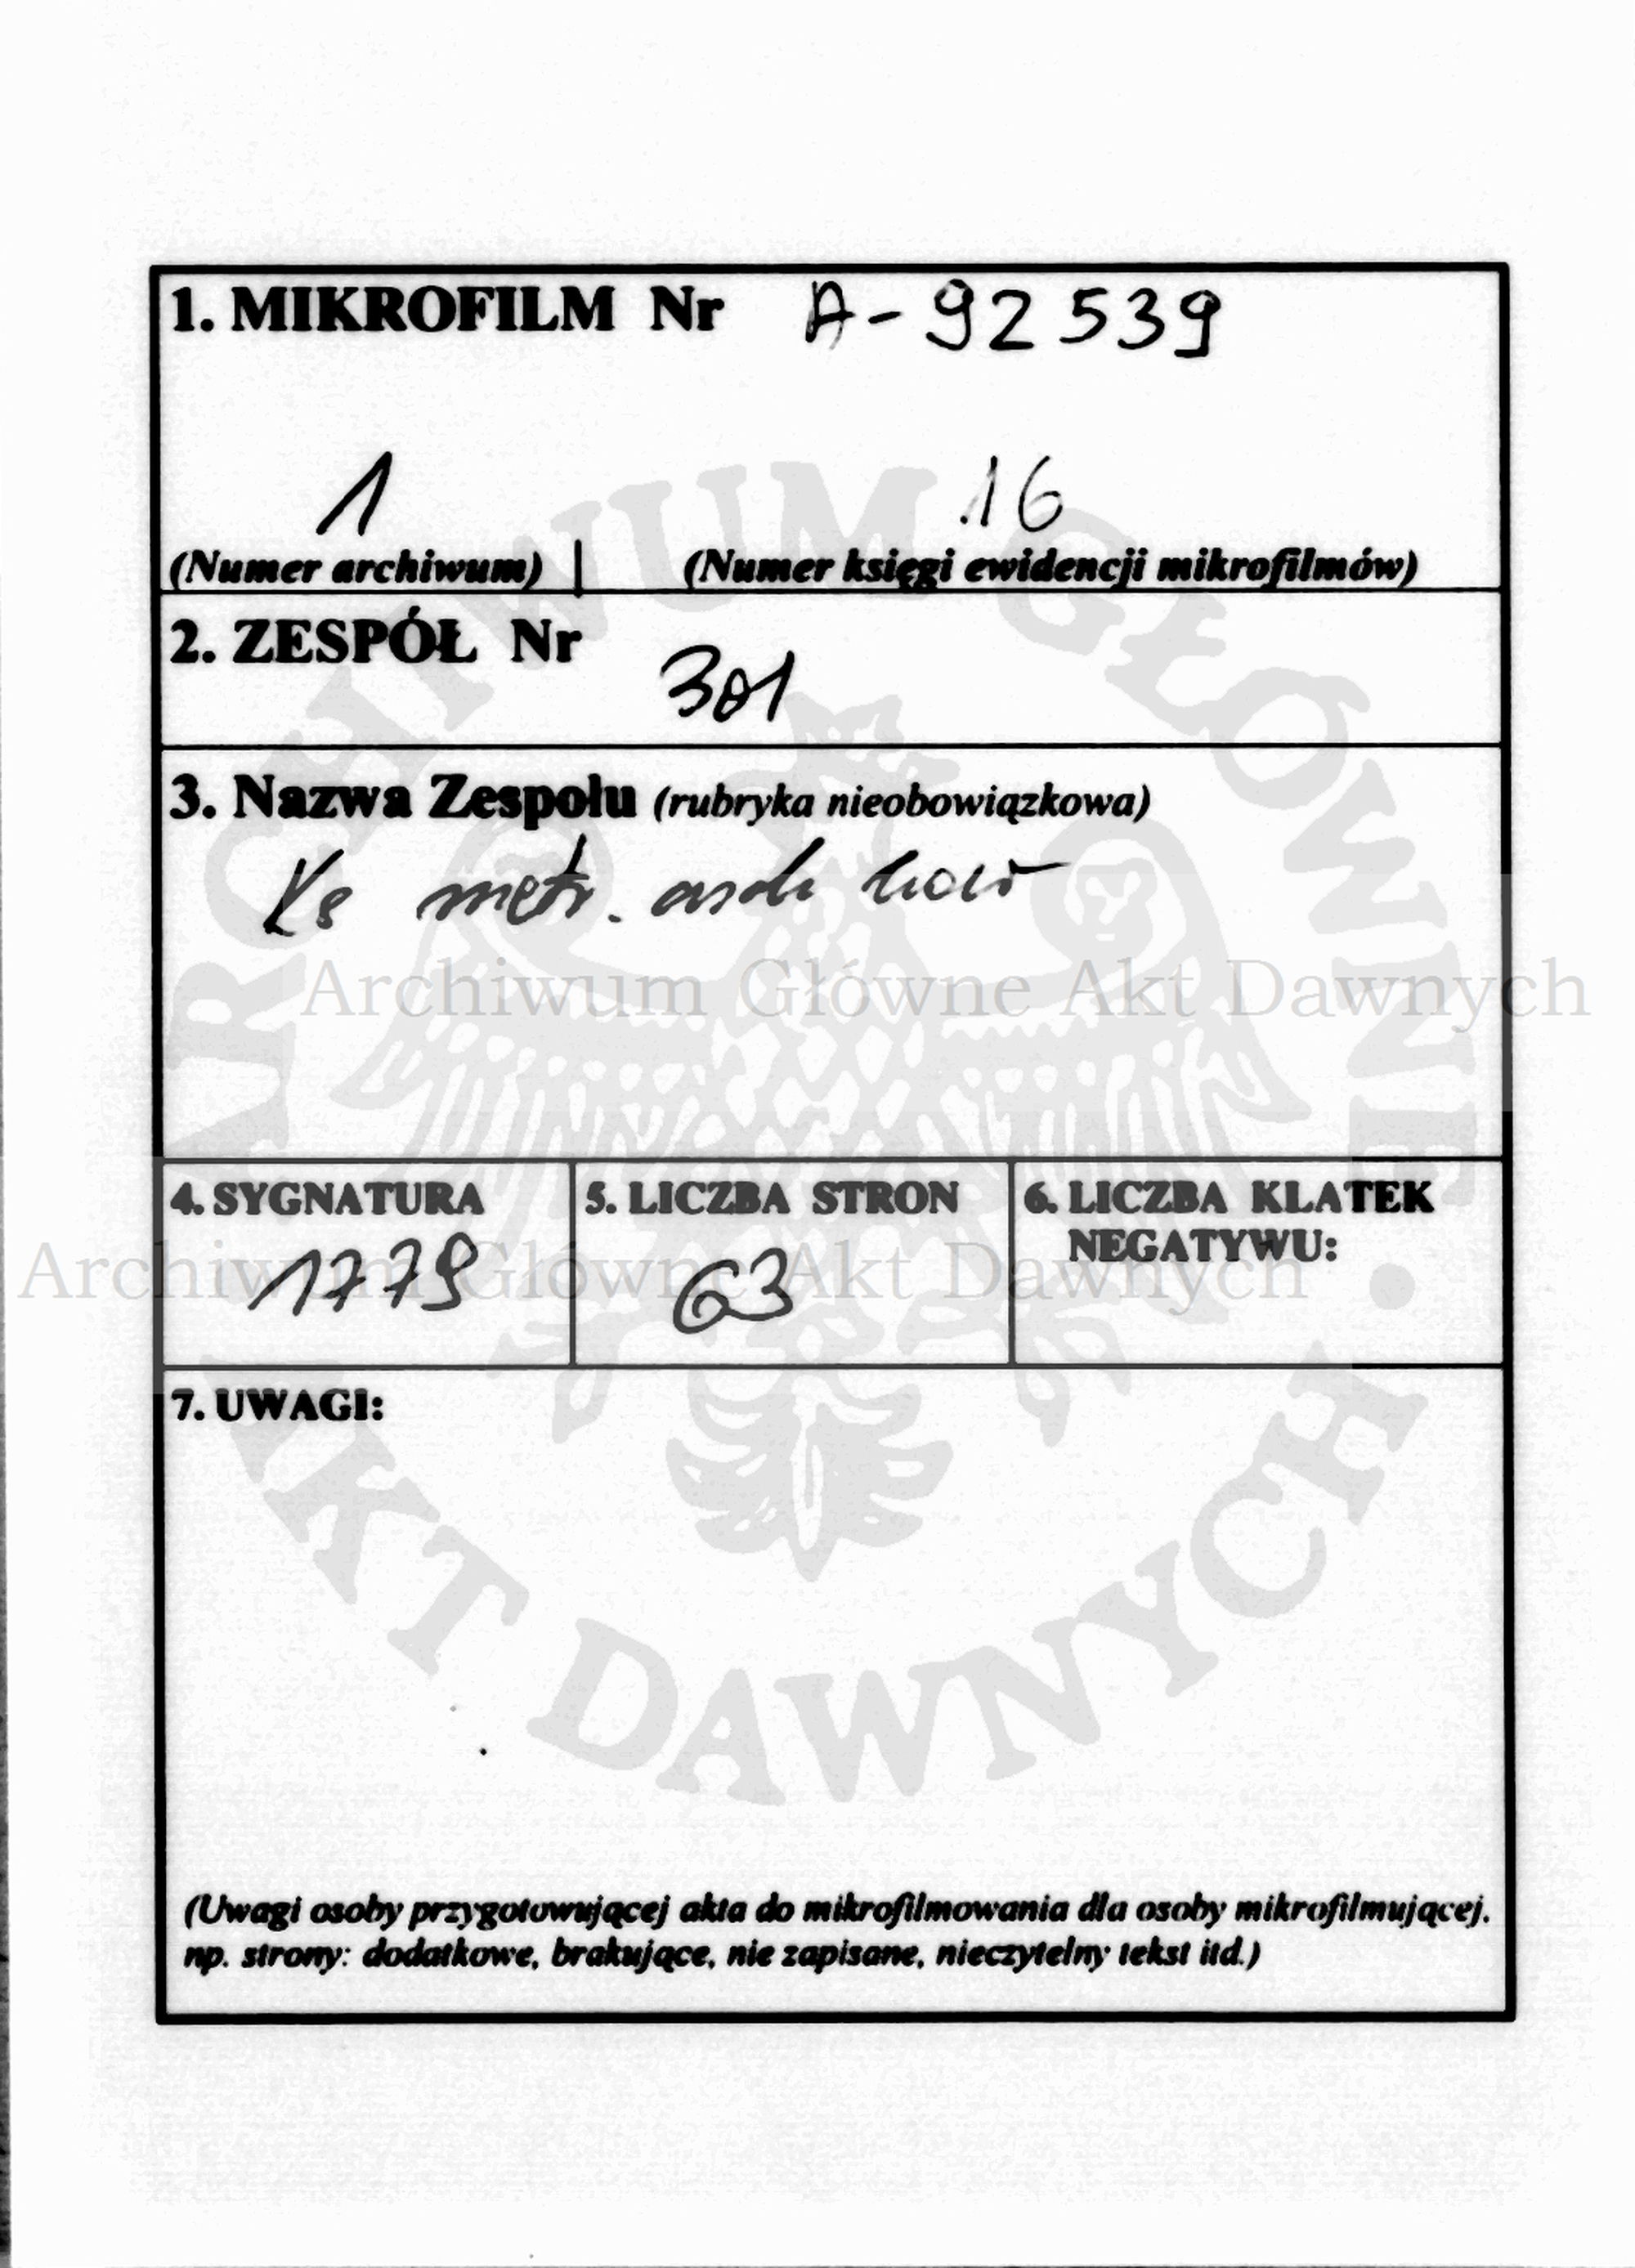 1. MIKROFILM Nr A-92539
1 16
(Numer archiwum) (Numer księgi ewidencji mikrofilmów)
2. ZESPÓŁ Nr 301
3. Nazwa Zespołu (rubryka nieobowiązkowa)
Ks metr.
Archiwum Główne Akt Dawnych
4. SYGNATURA 5. LICZBA STRON 6. LICZBA KLATEK
NEGATYWU:
1779 63
Archiwum Główne Akt Dawnych
7. UWAGI:
ARCHIWUM GŁÓWNE • AKT DAWNYCH
(Uwagi osoby przygotowującej akta do mikrofilmowania dla osoby mikrofilmującej.
np. strony: dodatkowe, brakujące, nie zapisane, nieczytelny tekst itd.)